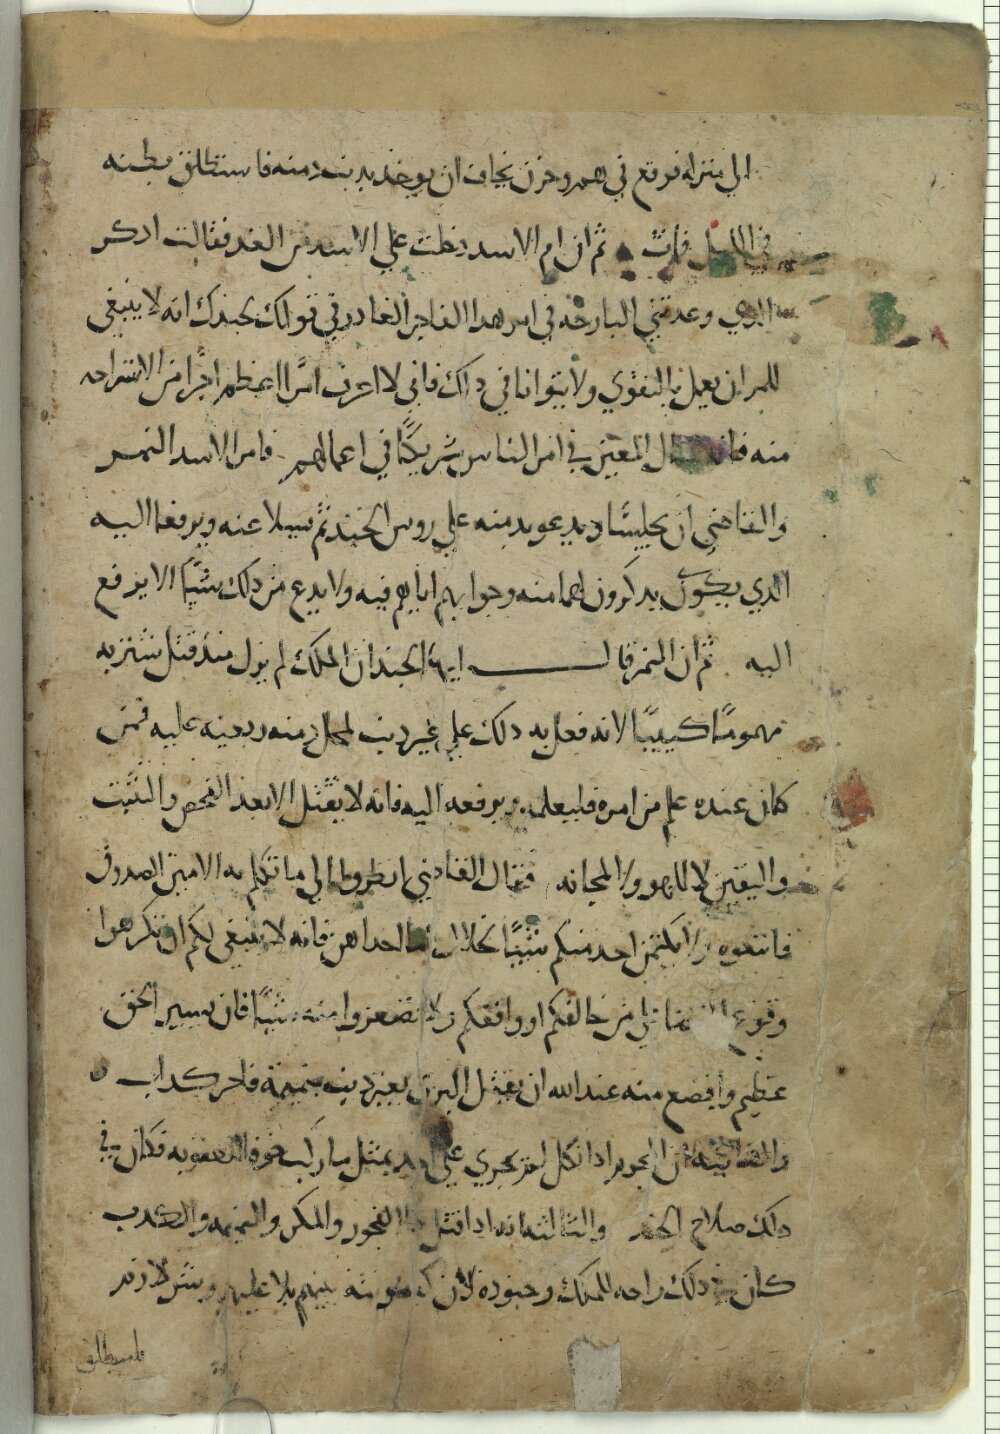 الي منزله فوقع في هم وحزن يخاف ان يوخذ بذنب دمنه فاستطلق بطنه
في الليل فمات ثم ان ام الاسد دخلت علي الاسد من الغد فقالت ادكر
الدي وعدتني البارحه في امر هدا الفاجر الغادر في قولك لجندك انه لا ينبغي
للمر ان يعمل بالتقوي ولا يتوانا في دلك فاني لا اعرف امرًا اعظم اجرًا من الاستراحه
منه فانه يقال المعين في امر الناس شريكًا في اعمالهم فامر الاسد النمر
والقاضي ان يجلسا ويدعو بدمنه علي روس الجند ثم يسلا عنه ويرفعا اليه
الدي يكون يدكرون لهما منه وجوابهم اياهم فيه ولا يدع من دلك شيًا الا يرفع
اليه ثم ان النمر قال ايها الجند ان الملك لم يزل منذ قتل شتربه
مهمومًا كييبًا لانه فعل به دلك علي غير ذنب لمحل دمنه وبغيه عليه فمن
كان عنده علم من امره فليعلمه ويرفعه اليه فانه لا يقتل الا بعد الفحص والتثبت
واليقين لا للهو ولا المجانه فقال القاضي انظروا الي ما تكلم به الامين الصدوق
فاتبعوه ولا يكتمن احد منكم شيًا لخلال اما احداهن فانه لا ينبغي لكم ان تكرهوا
وقوع القضا علي من خالفكم او وافقكم ولا تصغروا منه شيًا فان يسير الحق
عظيم وافضع منه عند الله ان يقتل البري بغير ذنب بنميمة فاجر كداب
والثانيه ان المجرم ادا نكل لم يجري علي احد بمثل ما ركب خوف العقوبه فكان في
دلك صلاح الجند والثالثه انه ادا قتل دا الفجور والمكر والنميمه والكدب
كان في دلك راحه للملك وجنوده لان كينونته بينهم بلا عليهم وشر لازم
فاستطلق